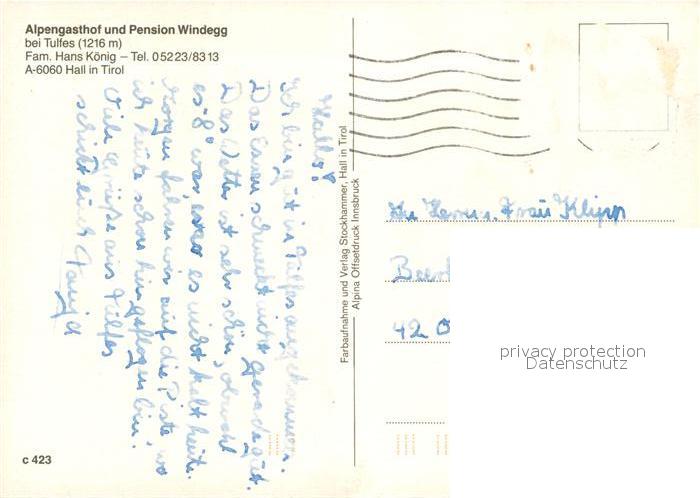 Alpengasthof und Pension Windegg
bei Tulfes (1216 m)
Fam. Hans König – Tel. 05223/8313
A-6060 Hall in Tirol
Hallo!
Ich bin gut in Tulfes angekommen.
Das Essen schmeckt nicht gerade gut.
Das Wetter ist sehr schön, obwohl
es -8° war, ist es nicht kalt heute.
Morgen fahren wir auf die Piste, wo
ich heute schon hingeflogen bin.
Viele Grüße aus Tulfes
schickt euch Tanja
Farbaufnahme und Verlag Stockhammer, Hall in Tirol
Alpina Offsetdruck Innsbruck
Herrn u. Frau Klipp
42 O
privacy protection
Datenschutz
c 423